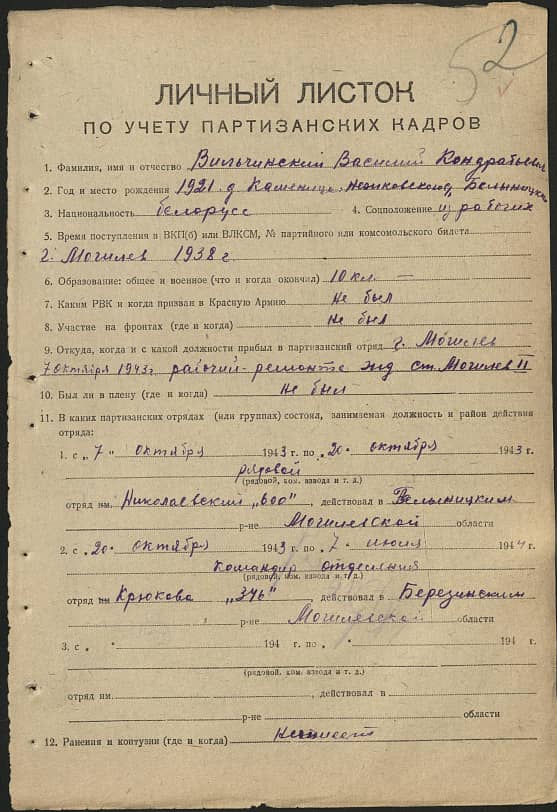 52
ЛИЧНЫЙ ЛИСТОК
ПО УЧЕТУ ПАРТИЗАНСКИХ КАДРОВ
1. Фамилия, имя и отчество Вильчинский Василий Кондратьевич
2. Год и место рождения 1921 д. Каменица, Белыницк
3. Национальность белорусс 4. Соцположение из рабочих
5. Время поступления в ВКП(б) или ВЛКСМ, № партийного или комсомольского билета
г. Могилев 1938 г
6. Образование: общее и военное (что и когда окончил) 10 кл —
7. Каким РВК и когда призван в Красную Армию не был
8. Участие на фронтах (где и когда) не был
9. Откуда, когда и с какой должности прибыл в партизанский отряд г. Могилев
7 октября 1943 г рабочий ремонта жд ст. Могилев II
10. Был ли в плену (где и когда) не был
11. В каких партизанских отрядах (или группах) состоял, занимаемая должность и район действия
отряда:
1. с „7" октября 1943 г. по „20" октября 1943 г.
рядовой
(рядовой, ком. взвода и т. д.)
отряд им. Николаевский „600", действовал в Белыницким
р-не Могилевской области
2. с „20" октября 1943 г. по „7" июля 1944 г.
командир отделения
(рядовой, ком. взвода и т. д.)
отряд им Крюкова „346", действовал в Березинским
р-не Могилевской области
3. с „ " 194 г. по „ " 194 г.
(рядовой, ком. взвода и т. д.)
отряд им. , действовал в
р-не области
12. Ранения и контузии (где и когда)